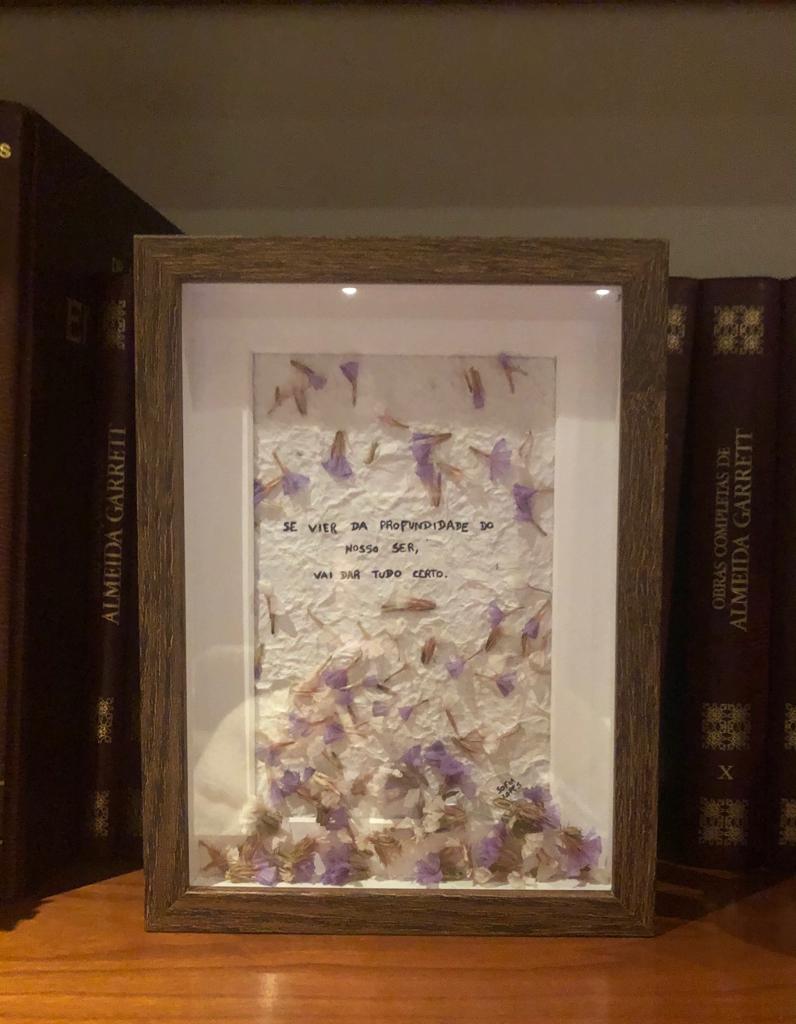 S
ALMEIDA GARRETT
SE VIER DA PROFUNDIDADE DO
NOSSO SER,
VAI DAR TUDO CERTO.
SOFIA
LOPES
OBRAS COMPLETAS DE
ALMEIDA GARRETT
X